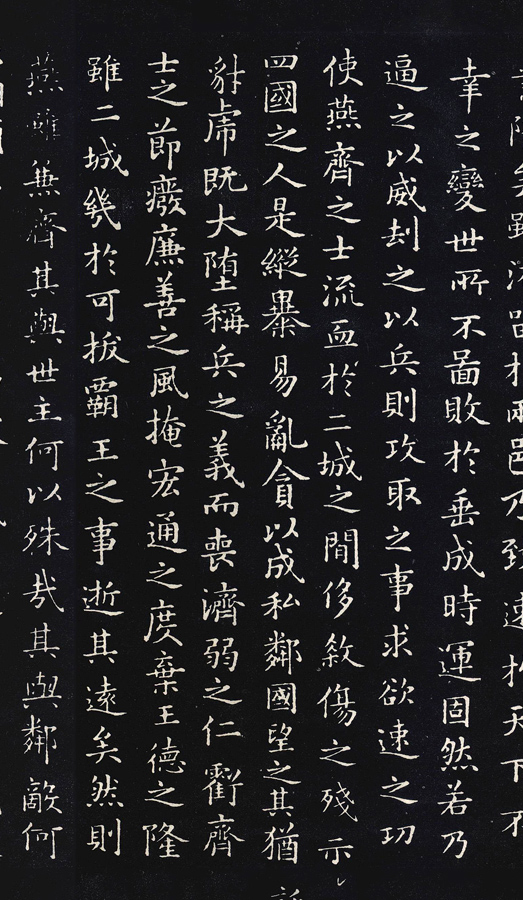 雖淹留於兩邑乃致速於天下不
幸之變世所不圖敗於垂成時運固然若乃
逼之以威刧之以兵則攻取之事求欲速之功
使燕齊之士流血於二城之閒侈殺傷之殘示
四國之人是縱暴易亂貪以成私鄰國望之其猶
豺虎既大墮稱兵之義而喪濟弱之仁虧齊
士之節廢廉善之風掩宏通之度棄王德之隆
雖二城幾於可拔霸王之事逝其遠矣然則
燕雖兼齊其與世主何以殊哉其與鄰敵何